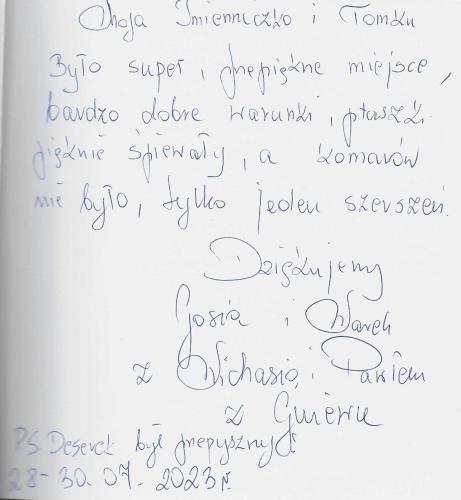 Moja Imienniczko i Tomku
Było super, przepiękne miejsce,
bardzo dobre warunki, ptaszki
pięknie śpiewały, a komarów
nie było, tylko jeden szerszeń.
Dziękujemy
Gosia i Marek
z Michasią i Patkiem
z Gniewu
P.S. Deserek był przepyszny
28-30.07.2023r.